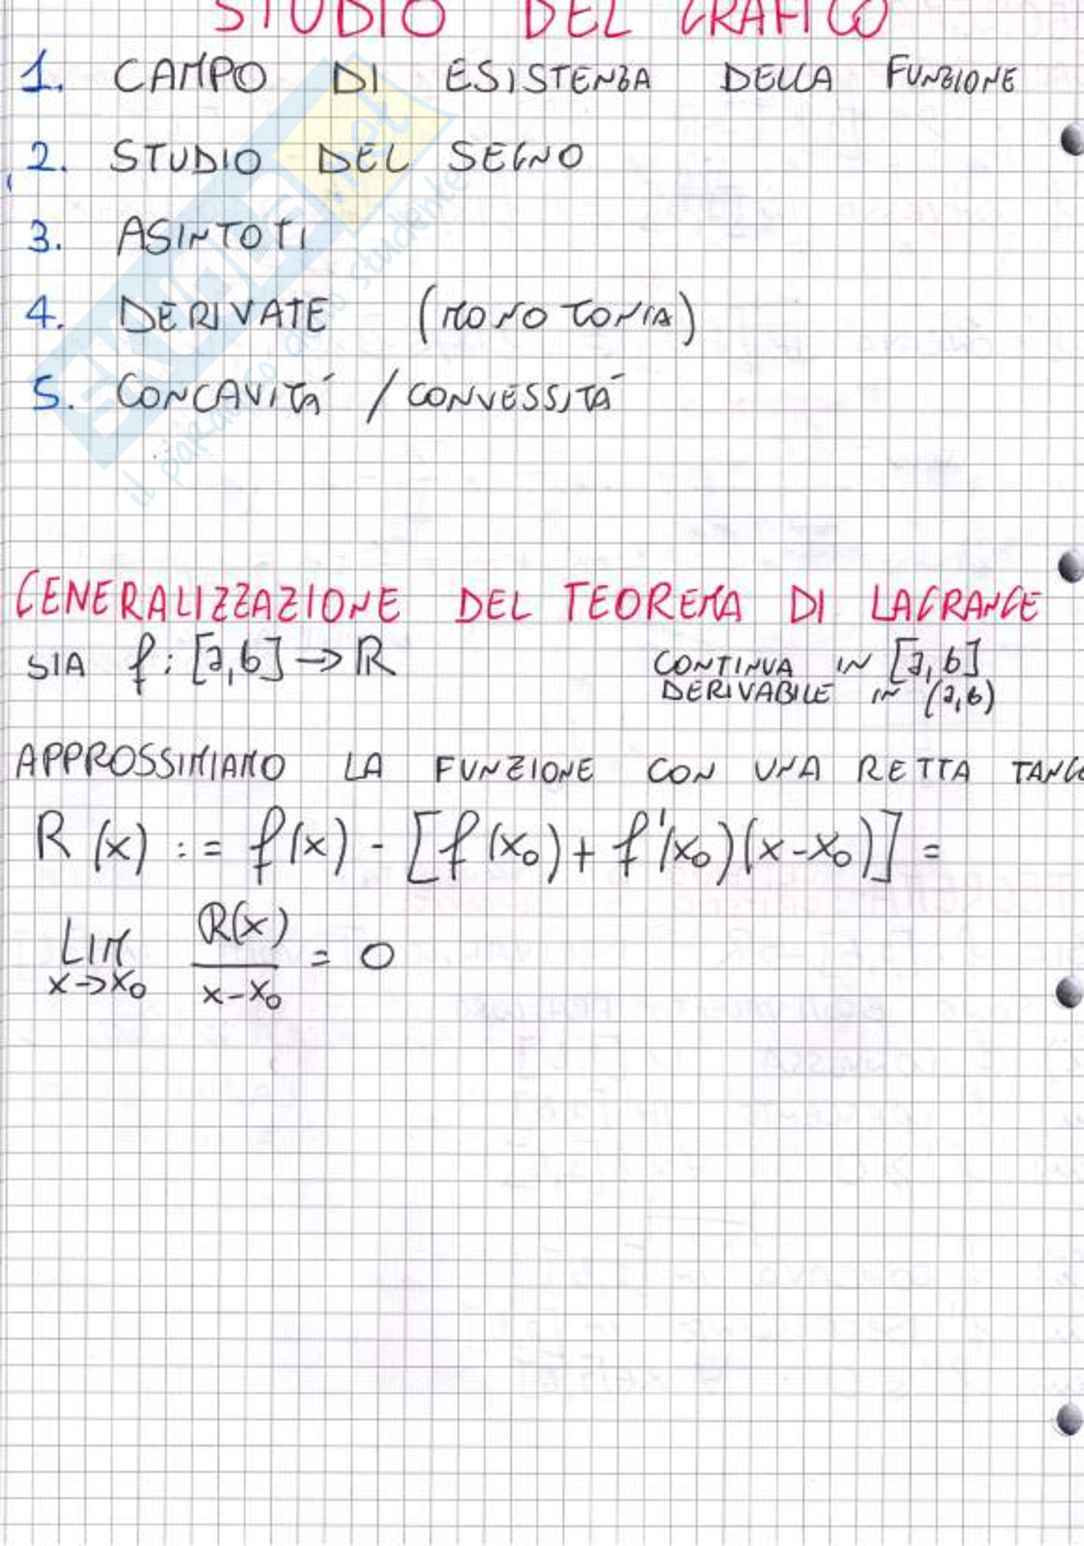 STUDIO DEL GRAFICO
1. CAMPO DI ESISTENZA DELLA FUNZIONE
2. STUDIO DEL SEGNO
3. ASINTOTI
4. DERIVATE (MONOTONIA)
5. CONCAVITÁ / CONVESSITÁ
SKUOLA.net
il paradiso dello studente
GENERALIZZAZIONE DEL TEOREMA DI LAGRANGE
SIA f: [a,b] → ℝ CONTINUA IN [a,b]
DERIVABILE IN (a,b)
APPROSSIMIAMO LA FUNZIONE CON UNA RETTA TANGE
R(x) := f(x) - [f(x₀) + f'(x₀)(x-x₀)] =
LIM x→x₀ R(x)/(x-x₀) = 0